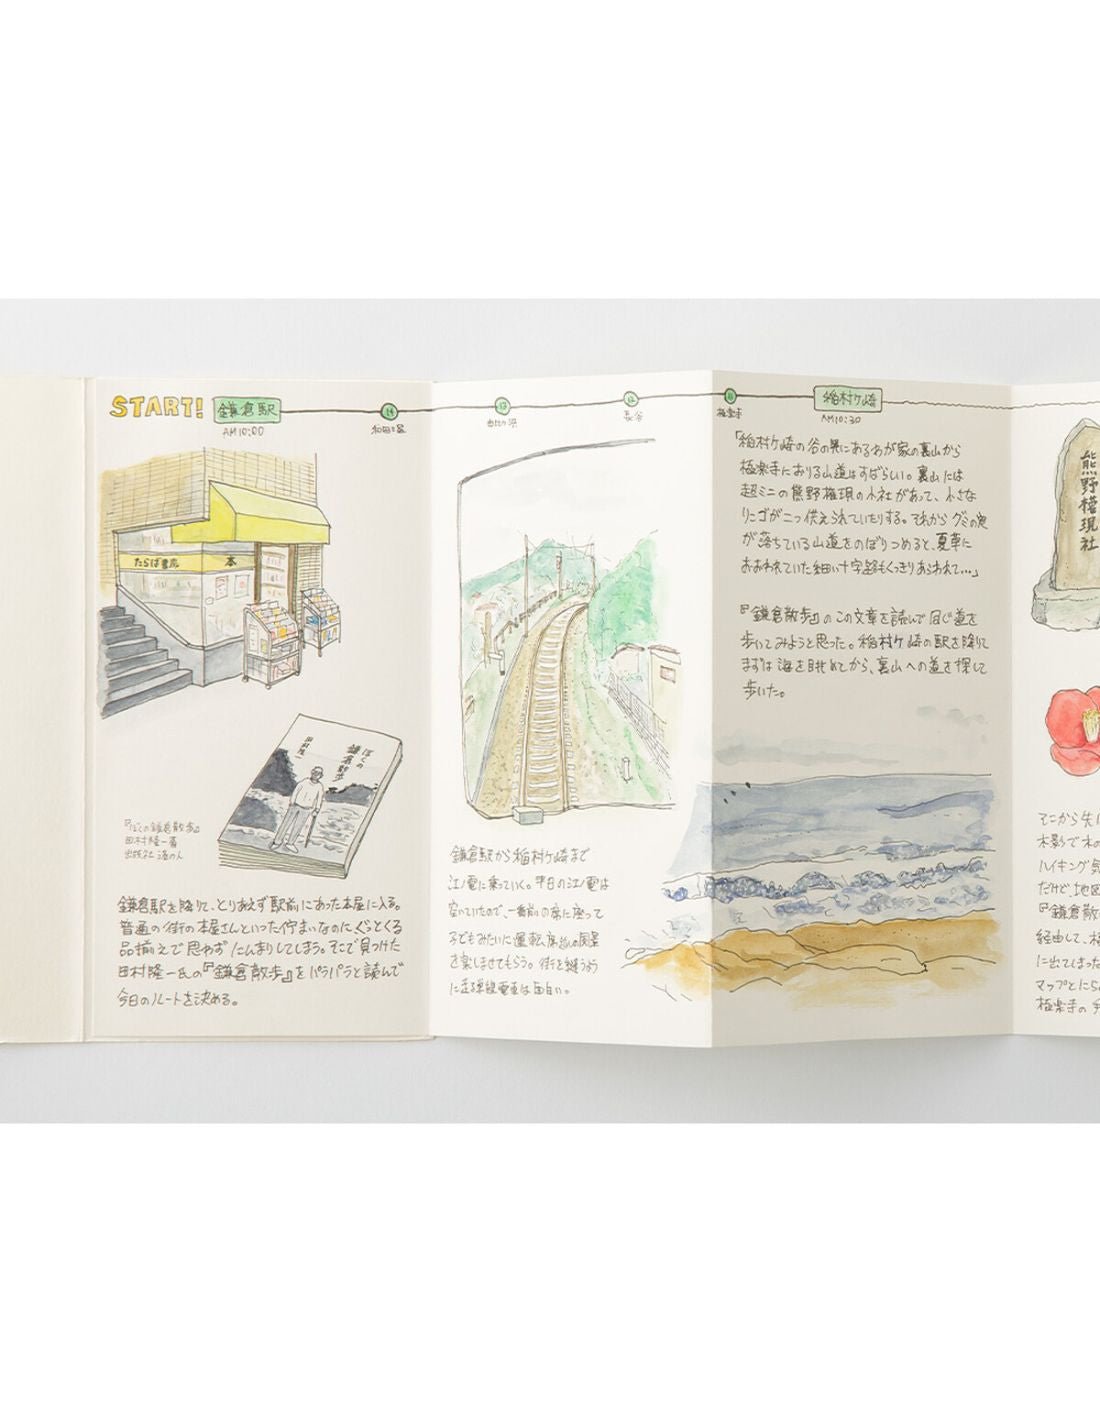 START!
鎌倉駅
AM10:00
14
和田塚
13
由比ヶ浜
12
長谷
11
極楽寺
稲村ヶ崎
AM10:30
たらば書房 本
ぼくの
鎌倉散歩
田村隆一
『ぼくの鎌倉散歩』
田村隆一著
出版社 港の人
鎌倉駅を降りて、とりあえず駅前にあった本屋に入る。
普通の街の本屋さんといった佇まいなのに、ぐっとくる
品揃えで思わずたんまりしてしまう。そこで見つけた
田村隆一氏の『鎌倉散歩』をパラパラと読んで
今日のルートを決める。
鎌倉駅から稲村ヶ崎まで
江ノ電に乗っていく。平日の江ノ電は
空いていたので、一番前の席に座って
子どもみたいに運転席越しの風景
を楽しませてもらう。街を縫うよう
に走る単線電車は面白い。
「稲村ヶ崎の谷の奥にあるわが家の裏山から
極楽寺におりる山道はすばらしい。裏山には
超ミニの熊野権現の小社があって、小さな
リンゴが二つ供えられていたりする。それからグミの実
が落ちている山道をのぼりつめると、夏草に
おおわれていた細い十字路もくっきりあらわれて…」
『鎌倉散歩』のこの文章を読んで同じ道を
歩いてみようと思った。稲村ヶ崎の駅を降りて
まずは海を眺めてから、裏山への道を探して
歩いた。
熊野権現社
そこから先に
木影で木の
ハイキング気
だけど地図
『鎌倉散
経由して、極
に出てしまった
マップとにら
極楽寺の